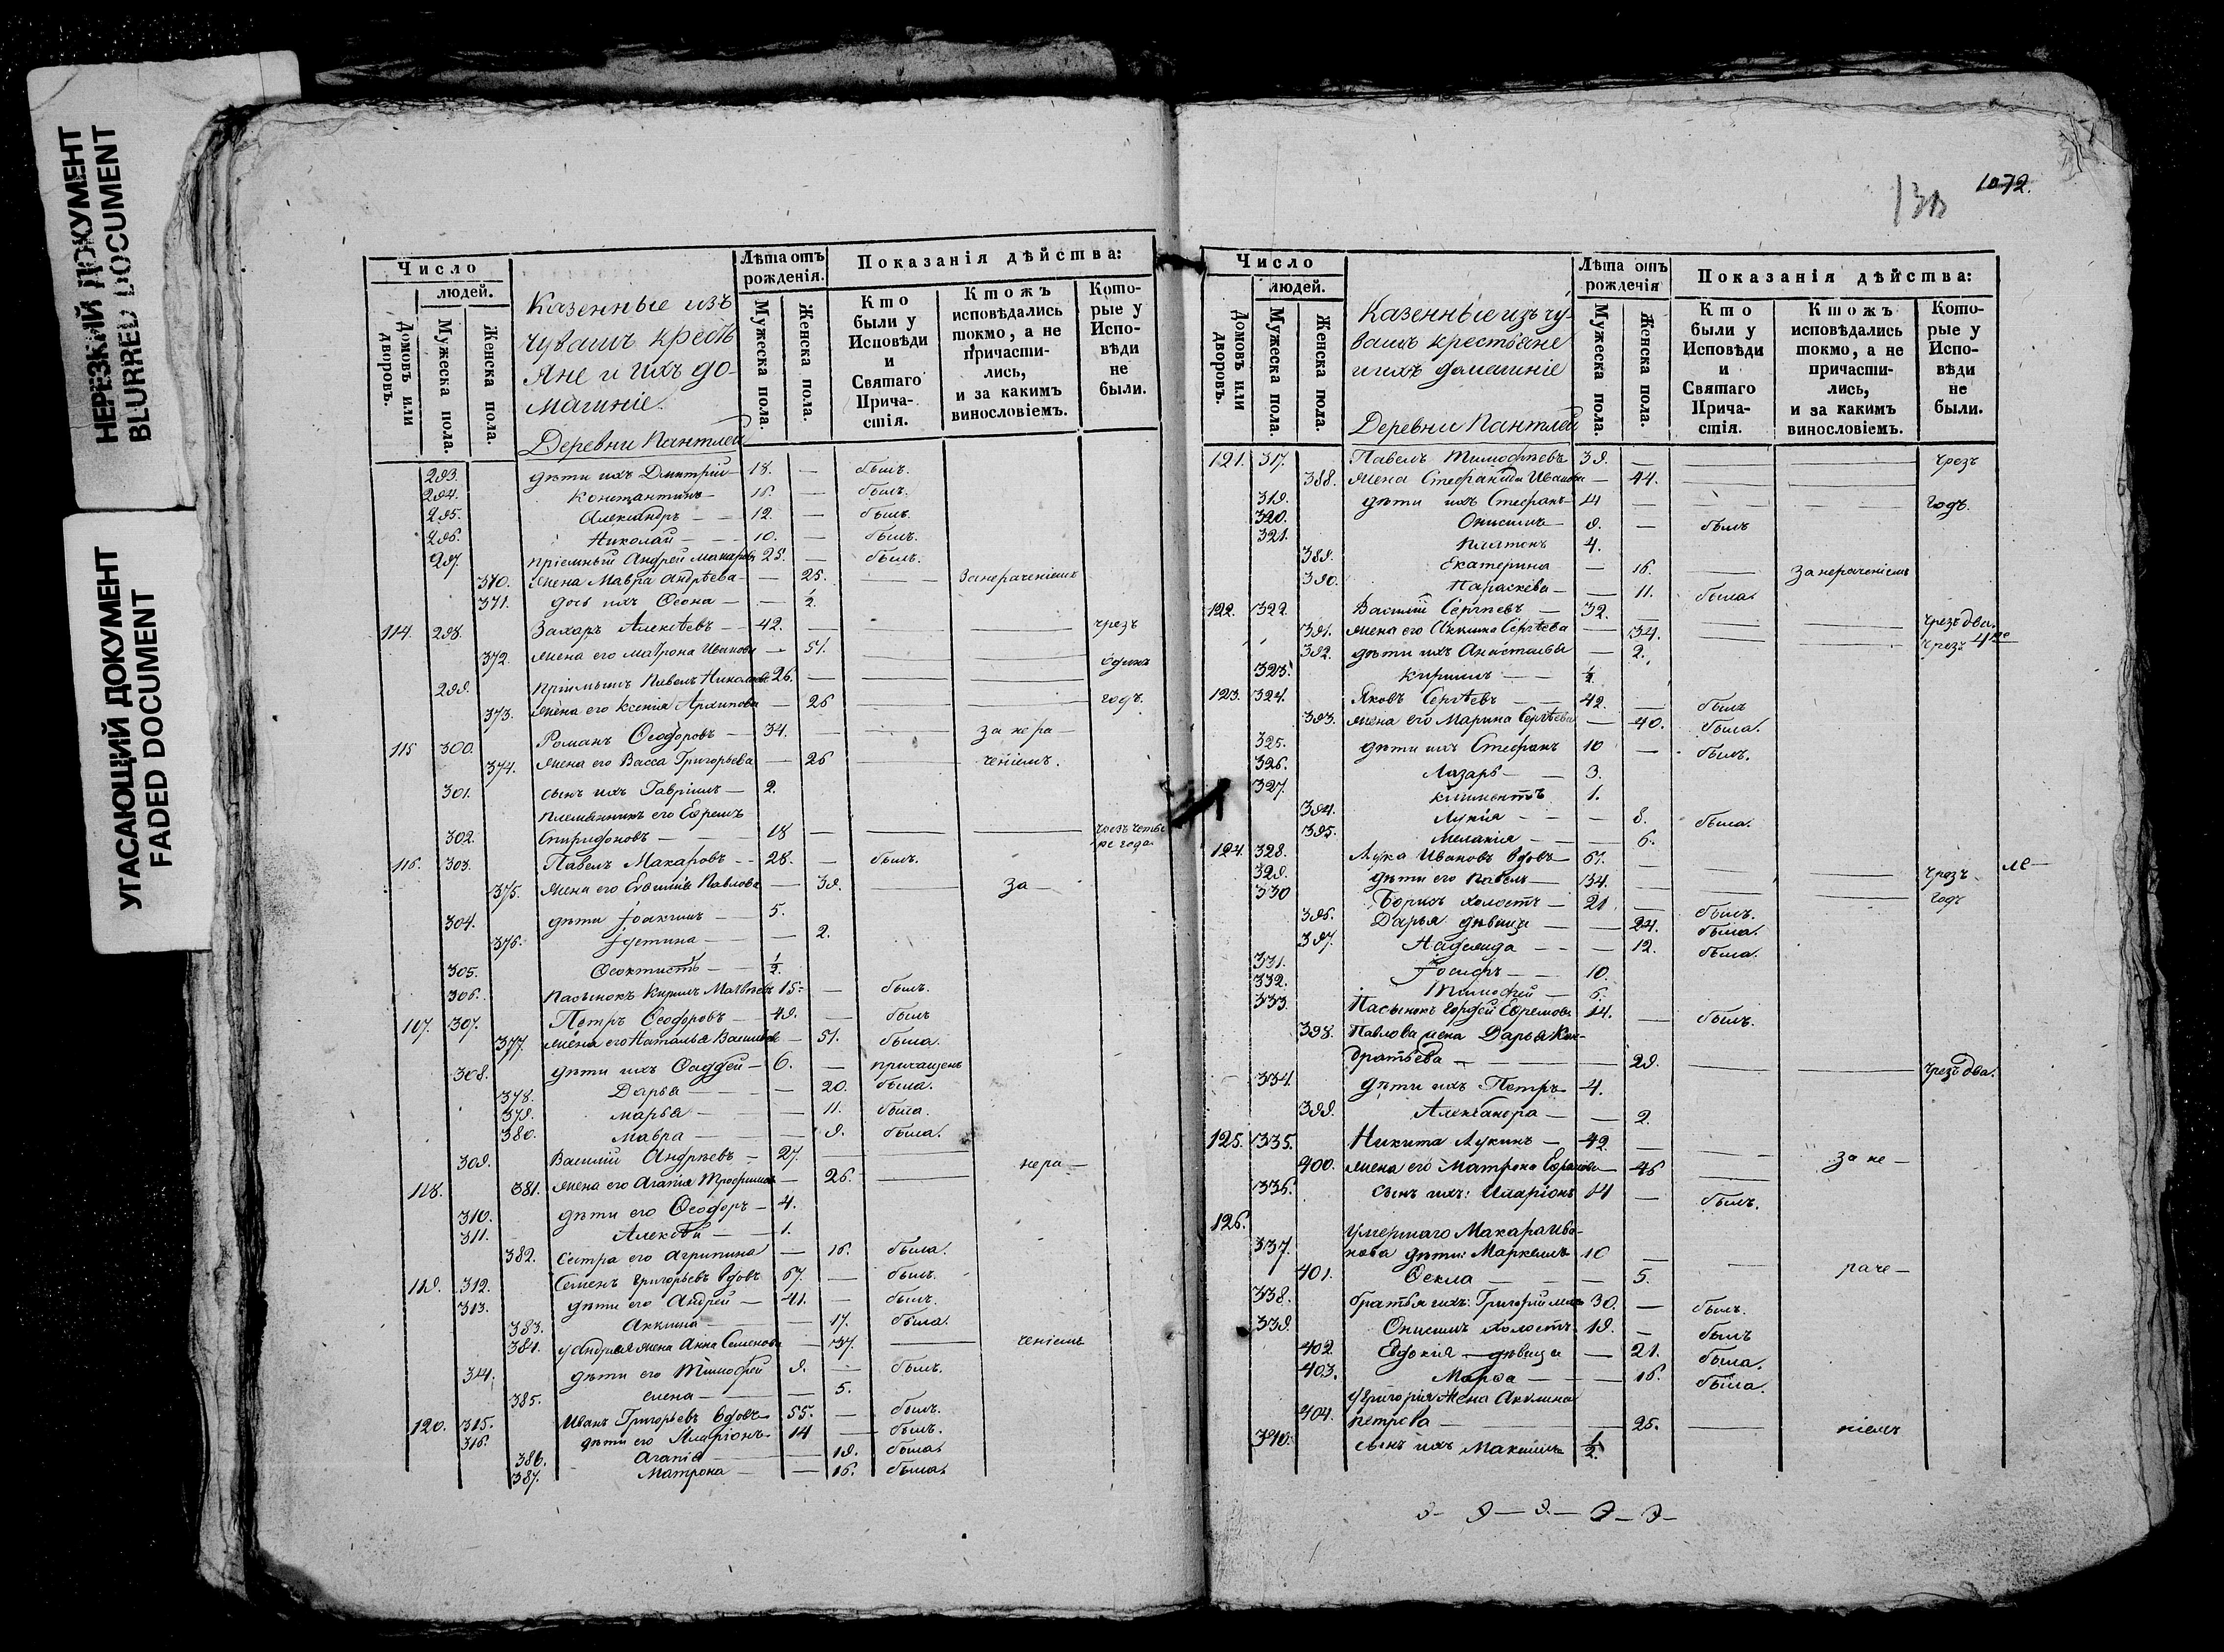 НЕРЕЗКИЙ ДОКУМЕНТ
BLURRED DOCUMENT
УГАСАЮЩИЙ ДОКУМЕНТ
FADED DOCUMENT
Число
людей.
Домовъ или дворовъ.
Мужеска пола.
Женска пола.
Казенные изъ
чувашъ кресть
яне и ихъ до-
машніе.
Деревни Пантлей
Лѣта отъ рожденія.
Мужеска пола.
Женска пола.
Показанія дѣйства:
Кто были у Исповѣди и Святаго Причастія.
Ктожъ исповѣдались токмо, а не причастились, и за какимъ винословіемъ.
Которые у Исповѣди не были.
293. дѣти ихъ Дмитрій — 18. — былъ.
294. Константинъ — 16. — былъ.
295. Александръ — 12. — былъ.
296. Николай — 10. — былъ.
297. пріемный Андрей Макаровъ 25. — былъ.
370. жена Мавра Андрѣева — 25. — За нераченіемъ
371. дочь ихъ — ½.
114. 298. Захаръ Алексѣевъ — 42. — чрезъ
372. жена его Матрона Иванова — 51. — одинъ
299. пріемышъ Павелъ 26. —
373. жена его Ксенія Архипова — 26 — годъ.
115 300. Романъ Ѳеодоровъ — 34. — за нера-
374. жена его Васса Григорьева — 26 — ченіемъ.
301. сынъ ихъ Гавріилъ — 2.
племянникъ его Ефремъ
302. Спиридоновъ — 18 — чрезъ четы-
ре года
116. 303. Павелъ Макаровъ — 28. — былъ.
375. жена его Павлова — 39. — за —
304. дѣти Іоакимъ — 5.
376. Іустина — 2.
305. Ѳеоктистъ — ½.
306. пасынокъ Кирилъ 15. — былъ.
117. 307. Петръ Ѳеодоровъ — 49. — былъ
377. жена его Наталья — 51. была.
308. дѣти ихъ Ѳаддей — 6. — причащенъ
378. Дарья — 20. была.
379. Марья — 11. была.
380. Мавра — 9. была.
309. Василій Андрѣевъ — 27. — нера —
118. 381. жена его Агапія — 26. —
310. дѣти его Ѳеодоръ — 4.
311. Алексѣй — 1.
382. Сестра его Агрипина — 16. была.
119. 312. Семенъ Григорьевъ вдовъ 67. — былъ.
313. дѣти его Андрей — 41. — былъ.
383. — 17. была.
384. у Андрея жена Анна Семенова — 37. — ченіемъ
314. дѣти его Тимофей 9. — былъ.
385. Елена — 5.
120. 315. Иванъ Григорьевъ вдовъ — 55. — былъ.
316. дѣти его Иларіонъ — 14 — былъ.
386. Агапія — 19. была
387. Матрона — 16. была
1072.
Число
людей.
Домовъ или дворовъ.
Мужеска пола.
Женска пола.
Казенные изъ чу-
вашъ крестьяне
и ихъ домашніе
Деревни Пантлей
Лѣта отъ рожденія
Мужеска пола.
Женска пола.
Показанія дѣйства:
Кто были у Исповѣди и Святаго Причастія.
Ктожъ исповѣдались токмо, а не причастились, и за какимъ винословіемъ.
Которые у Исповѣди не были.
121. 317. Павелъ Тимофѣевъ 39. — чрезъ
388. жена Стефанида Иванова — 44. —
319. дѣти ихъ Стефанъ — 14 — годъ.
320. Онисимъ — 9. — былъ
321. Платонъ 4.
389. Екатерина — 16. — За нераченіемъ
390. Параскева — 11. была.
122. 322. Василій Сергѣевъ — 32. — чрезъ два.
391. жена его Сергѣева — 34. — чрезъ
392. дѣти ихъ Анастасья — 2.
323. Кирилъ — ½.
123. 324. Яковъ Сергѣевъ — 42. — былъ
393. жена его Марина Сергѣева — 40. была.
325. дѣти ихъ Стефанъ 10 — былъ.
326. Лазарь — 3.
327. Климентъ 1.
394. Лукія — 8. была.
395. Меланія — 6.
124. 328. Лука Ивановъ вдовъ — 67. — чрезъ
329. дѣти его Павелъ — 34. — годъ
330 Борисъ холостъ — 21 — былъ.
396. Дарья дѣвица — 24. была.
397. Надежда — 12. была.
331. Іосифъ — 10.
332. Тимофей — 6.
333. Пасынокъ Гордей Ефремовъ 14. — былъ.
398. Павлова жена Дарья Кон-
дратьева — 29. — чрезъ два.
334. дѣти ихъ Петръ — 4.
399. Александра — 2.
125. 335. Никита Лукинъ — 42 —
400. жена его Матрона — 46 — за не —
336. сынъ ихъ: Иларіонъ 14 — былъ.
126. Умершаго Макара Ива-
337. нова дѣти: Маркелъ 10 —
401. Ѳекла — 5. — раче —
338. братья ихъ: Григорій 30. — былъ.
339. Онисимъ холостъ 19. — былъ
402. Евдокія — дѣвица — 21. была.
403. Марѳа — 16. была.
у Григорія жена Акилина
404. Петрова — 25. — ніемъ
340. сынъ ихъ Максимъ ½.